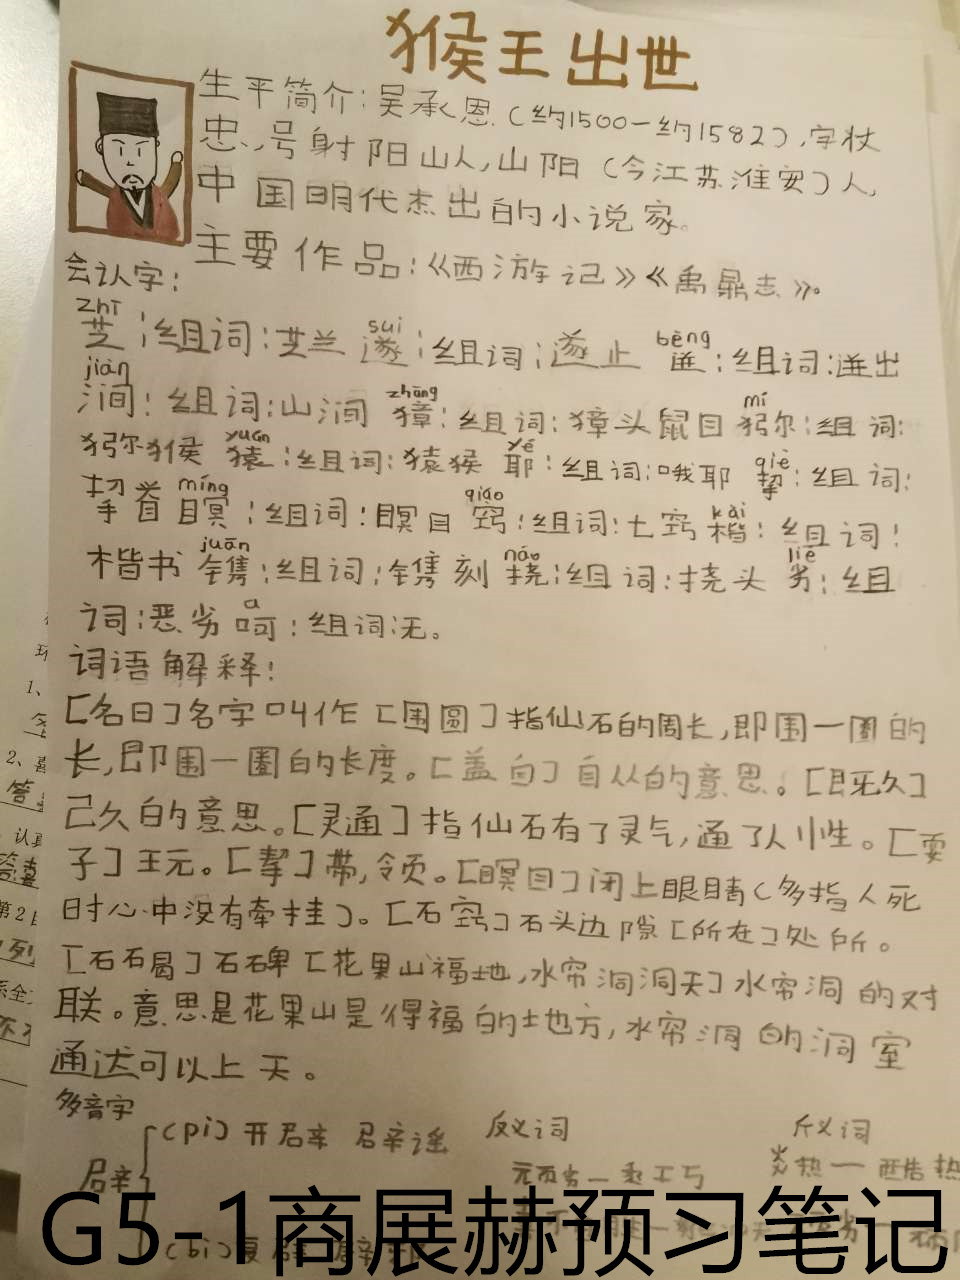 猴王出世
生平简介:吴承恩(约1500—约1582),字汝
忠,号射阳山人,山阳(今江苏淮安)人,
中国明代杰出的小说家。
主要作品:《西游记》《禹鼎志》。
会认字:
zhī
芝:组词:芝兰 suì 遂:组词:遂止 bèng 迸:组词:迸出
jiàn
涧:组词:山涧 zhāng 獐:组词:獐头鼠目 mí 猕:组词:
猕猴 yuán 猿:组词:猿猴 yé 耶:组词:哦耶 qiè 挈:组词:
挈眷 míng 瞑:组词:瞑目 qiào 窍:组词:七窍 kǎi 楷:组词:
楷书 juān 镌:组词:镌刻 náo 挠:组词:挠头 liè 劣:组
词:恶劣 a 呵:组词:无。
词语解释:
[名曰]名字叫作[围圆]指仙石的周长,即围一圈的
长,即围一圈的长度。[盖自]自从的意思。[既久]
己久的意思。[灵通]指仙石有了灵气,通了人小性。[耍
子]玩。[挈]带,领。[瞑目]闭上眼睛(多指人死
时心中没有牵挂)。[石窍]石头边隙[所在]处所。
[石碣]石碑[花果山福地,水帘洞洞天]水帘洞的对
联。意思是花果山是得福的地方,水帘洞的洞室
通达可以上天。
多音字
(pì)开辟 辟谣
辟
(bì)复辟
反义词
顽劣—乖巧
近义词
炎热—酷热
G5-1商展赫预习笔记